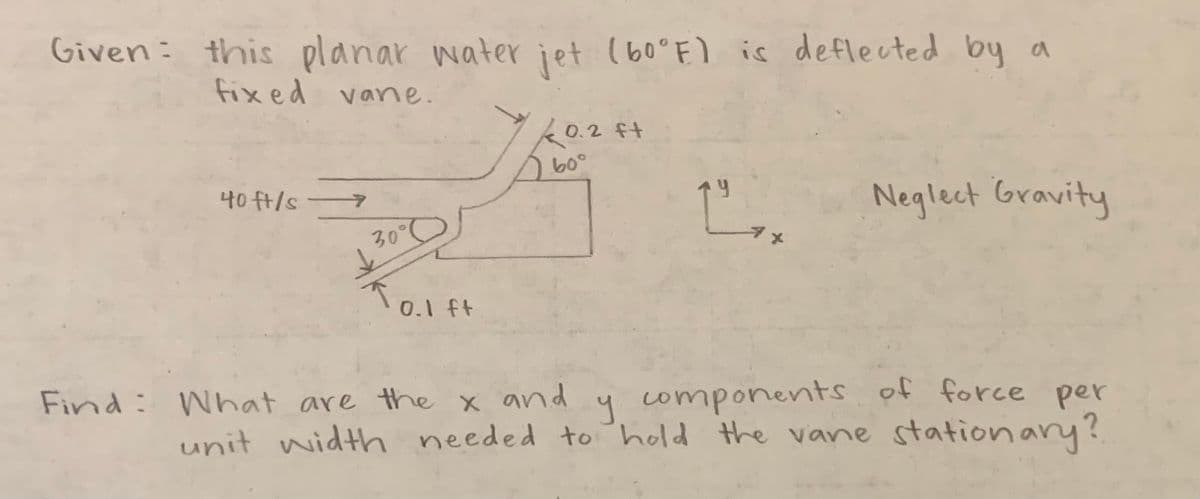 Given: this planar water jet (60°F) is deflected by a
fixed vane.
0.2 ft
60°
40 ft/s
y
Neglect Gravity
x
30°
0.1 ft
Find: What are the x and y components of force per
unit width needed to hold the vane stationary?